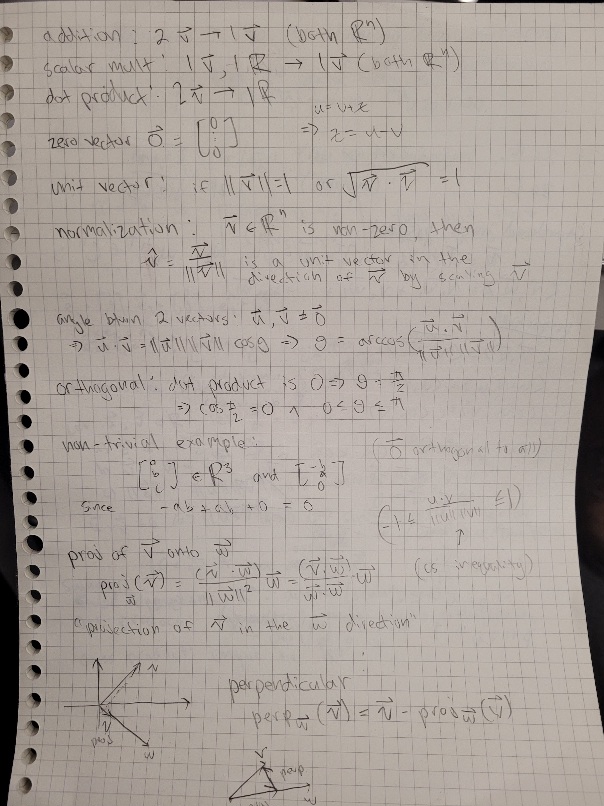 addition: 2 v⃗ → 1 v⃗ (both ℝⁿ)
scalar mult: 1 v⃗, 1 ℝ → 1 v⃗ (both ℝⁿ)
dot product: 2 v⃗ → 1 ℝ
u = v + z
zero vector 0⃗ = [0 ⋮ 0] ⇒ z = u - v
unit vector: if ||v⃗|| = 1 or √(v⃗ · v⃗) = 1
normalization: v⃗ ∈ ℝⁿ is non-zero, then
v̂ = v⃗ / ||v⃗|| is a unit vector in the
direction of v⃗ by scaling v⃗
angle btwn 2 vectors: u⃗, v⃗ ≠ 0⃗
⇒ u⃗ · v⃗ = ||u⃗|| ||v⃗|| cos θ ⇒ θ = arccos(u⃗ · v⃗ / ||u⃗|| ||v⃗||)
orthogonal: dot product is 0 ⇒ θ = π/2
⇒ cos π/2 = 0 ∧ 0 ≤ θ ≤ π
non-trivial example: (0⃗ orthogonal to all)
[a b c] ∈ ℝ³ and [-b a 0]
since -ab + ab + 0 = 0
(-1 ≤ u·v / ||u|| ||v|| ≤ 1)
↑
(CS inequality)
proj of v⃗ onto w⃗
proj w⃗ (v⃗) = (v⃗ · w⃗) / ||w⃗||² w⃗ = (v⃗ · w⃗) / w⃗ · w⃗ · w⃗
"projection of v⃗ in the w⃗ direction"
v
proj
w
perpendicular
perp w⃗ (v⃗) = v⃗ - proj w⃗ (v⃗)
v
perp
w